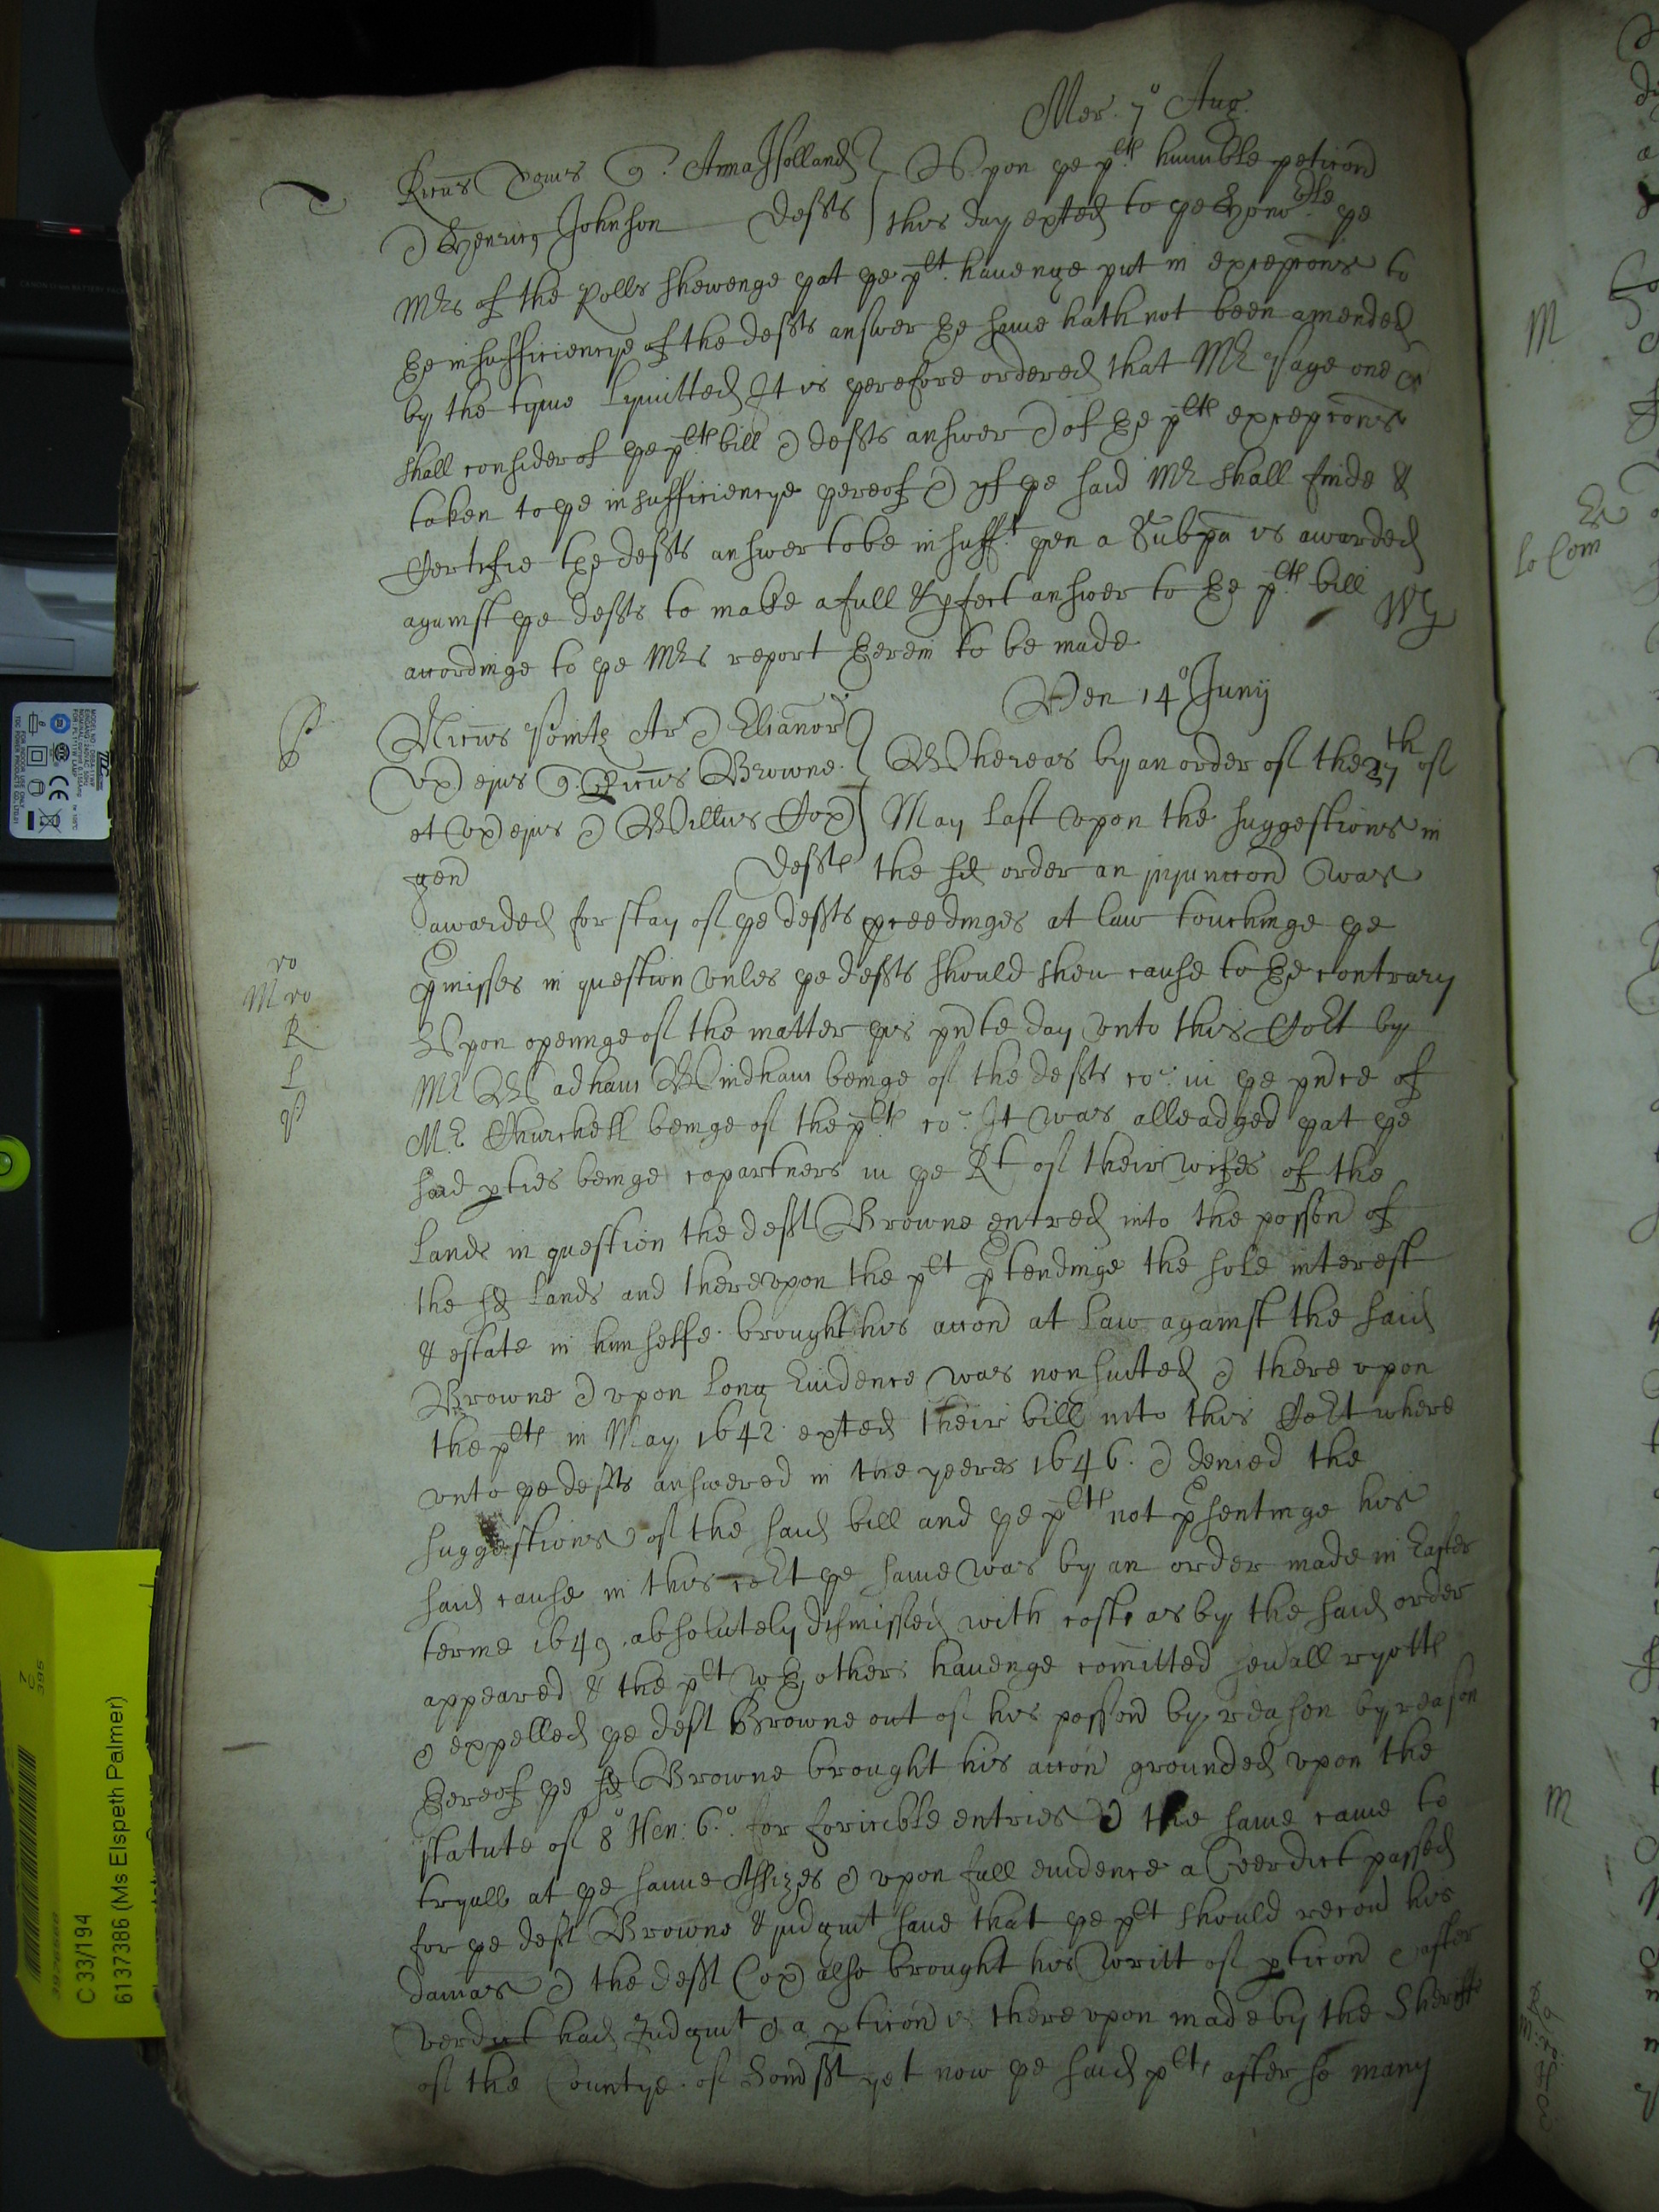 Mer. 7° Aug.
Ricus q. Anna Holland Upon ye plts humble peticon
& Henricus Johnson Defts this day exted to ye Honoble ye
Mr of the Rolls shewenge yat ye plt. havenge put in excepcons to
ye insufficiencye of the defts answer ye same hath not been amended
by the tyme Lymitted It is yerefore ordered that Mr Page one &c
shall consider of ye plts bill & defts answer & of ye plts excepcons
taken to ye insufficiencye yereof & yf ye said Mr shall finde &
Certifie the defts answer to be insufft. yen a Subpa is awarded
against ye defts to make a full & pfect answer to ye plts bill
accordinge to ye Mrs report herein to be made
Ven 14° Junij
Nicus Pointz Ar & Elianor
ux ejus q. Ricus Browne Whereas by an order of the 27th of
et ux ejus & Willus Cox May last upon the suggestions in
gen Defts the sd order an injunccon was
awarded for stay of ye defts pceedinges at law touchinge ye
pmisses in question unles ye defts should shew cause to ye contrary
Upon openinge of the matter yis pnte day unto this Cort by
Mr Wadham Windham beinge of the defts co: in ye pnce of
Mr Churchell beinge of the plts co: It was alleadged yat ye
said pties beinge copartners in ye Rt of their wifes of the
Lands in question the deft Browne entred into the posson of
the sd Lands and thereupon the plt ptendinge the sole interest
& estate in himselfe brought his accon at Law against the said
Browne & upon long Evidence was nonsuited & there upon
the plts in May 1642 exted their bill into this Cort where
unto ye defts answered in the yeere 1646. & denied the
suggestions of the said bill and ye plts not psentinge his
said cause in this cort ye same was by an order made in Easter
terme 1649 absolutely dismissed with costs as by the said order
appeared & the plt wth others havenge comitted sevall ryotts
& expelled ye deft Browne out of his posson by reason by reason
hereof ye sd Browne brought his accon grounded upon the
statute of 8° Hen: 6°. for forcible entries & the same came to
tryall at ye same Assizes & upon full evidence a verdict passed
for ye deft Browne & judgmt save that ye plt should recovd his
damas & the deft Cox also brought his writt of pticon & after
verdict had Judgmt & a pticon is thereupon made by the Sheriffe
of the Countye of Somsst yet now ye said plts after so many
M
ro
M ro
R
L
C 33/194
6137386 (Ms Elspeth Palmer)